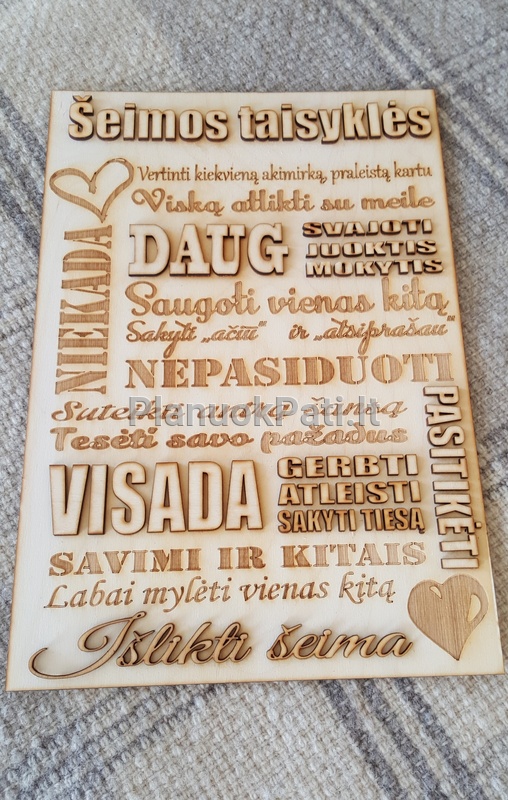 Šeimos taisyklės
Vertinti kiekvieną akimirką, praleistą kartu
Viską atlikti su meile
DAUG
SVAJOTI
JUOKTIS
MOKYTIS
Saugoti vienas kitą
Sakyti „ačiū“ ir „atsiprašau“
NIEKADA
NEPASIDUOTI
Suteikti antrą šansą
PlanuokPati.lt
Tesėti savo pažadus
VISADA
GERBTI
ATLEISTI
SAKYTI TIESĄ
PASITIKĖTI
SAVIMI IR KITAIS
Labai mylėti vienas kitą
Išlikti šeima